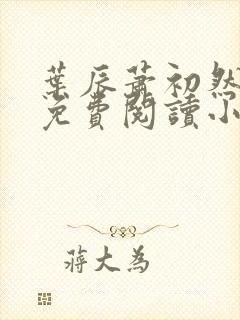 葉辰蕭初然
免費閱讀小
蔣大為